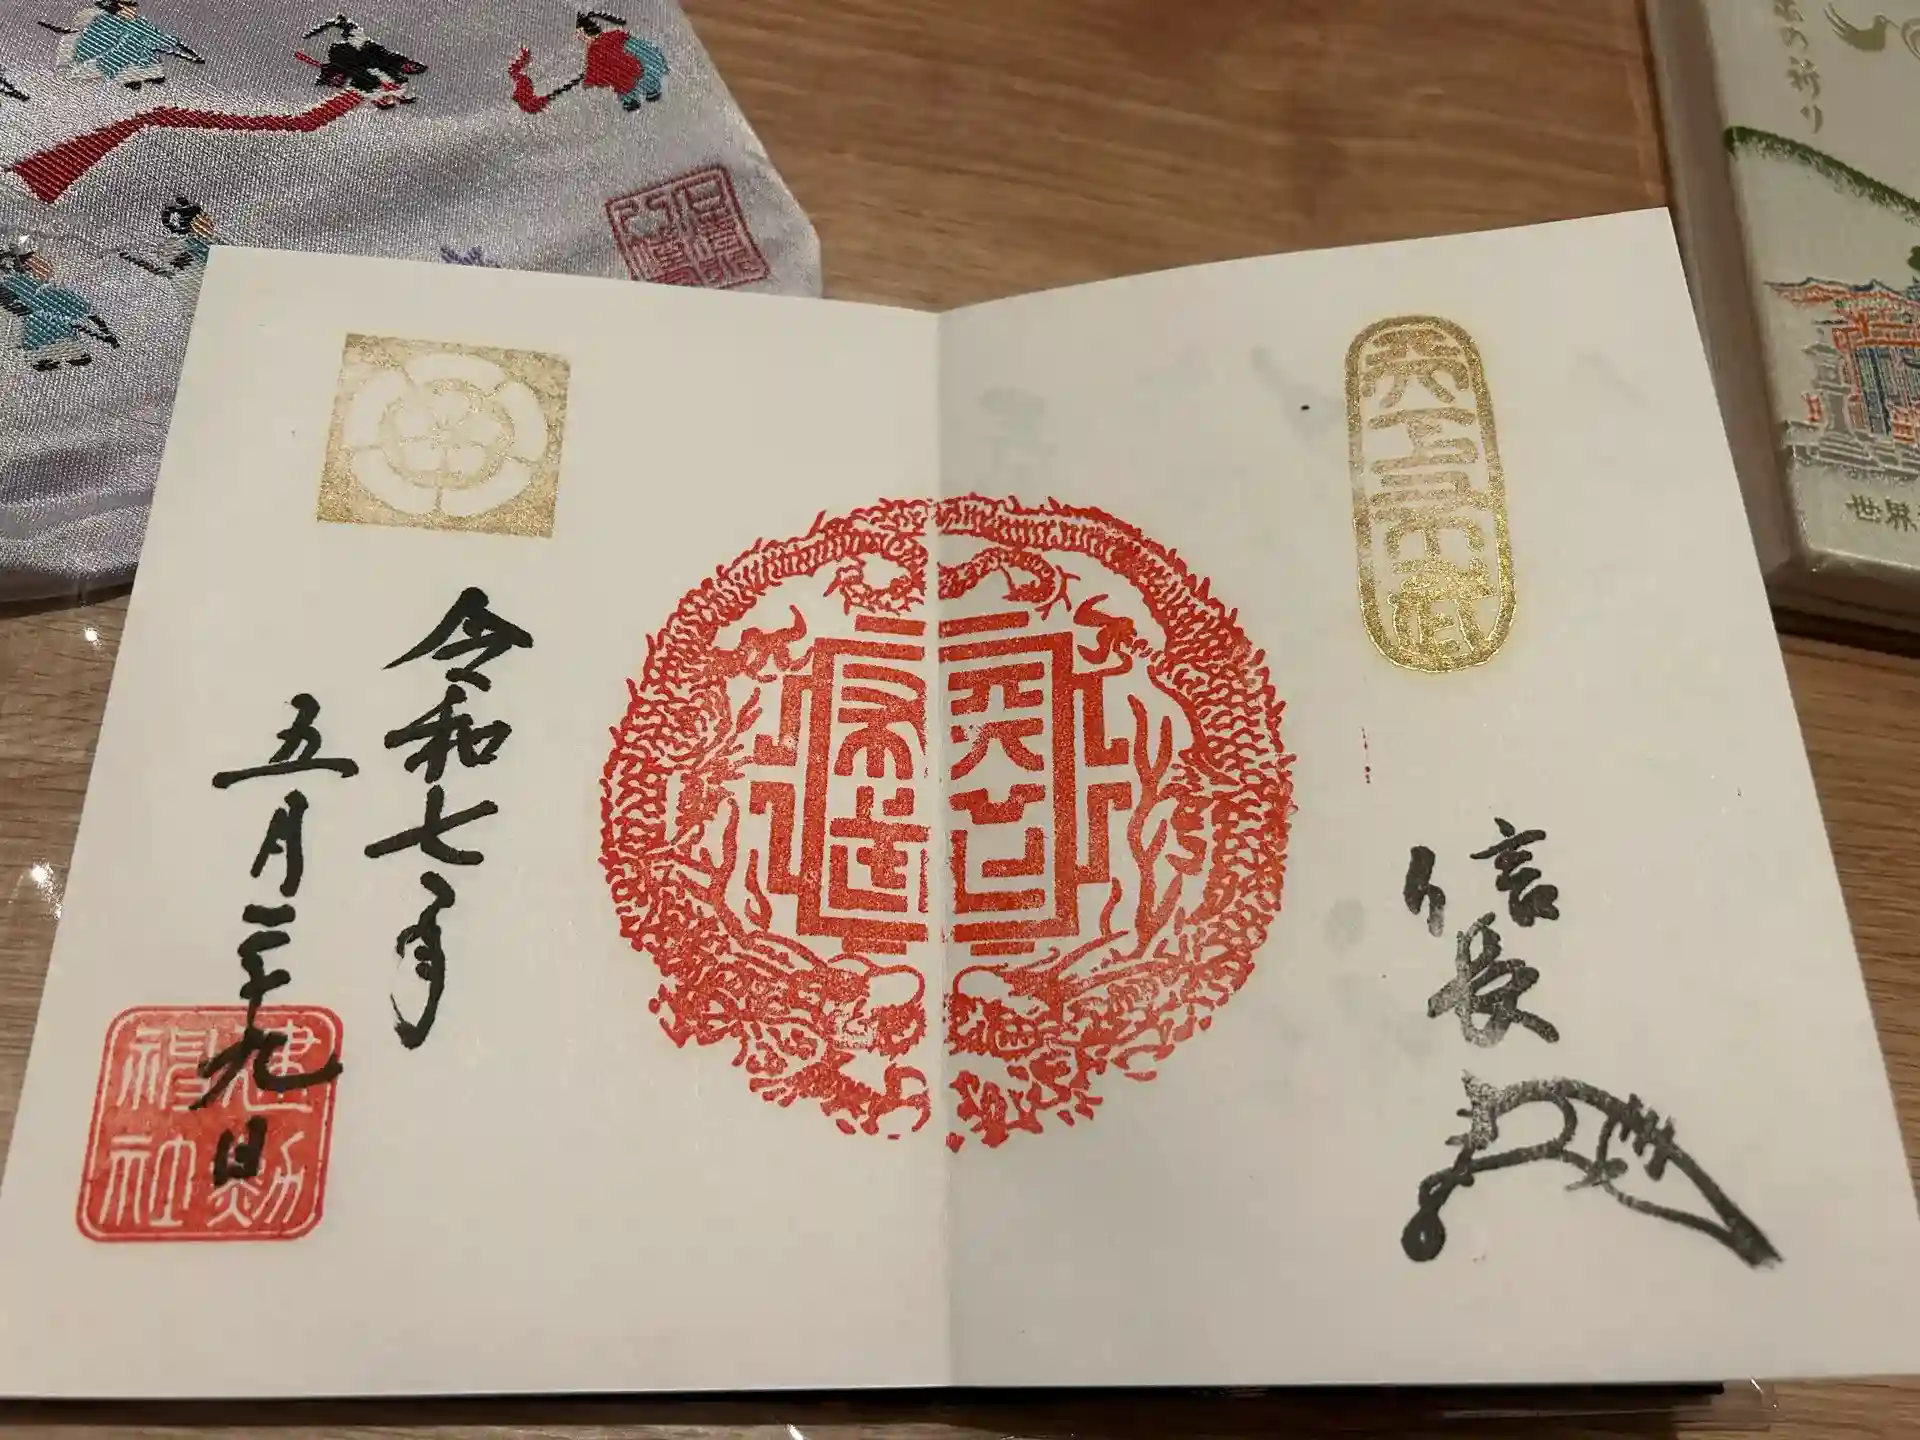 天下布武
信長
天下布武
令和七年
五月二十九日
建勲
神社
祈り
世界